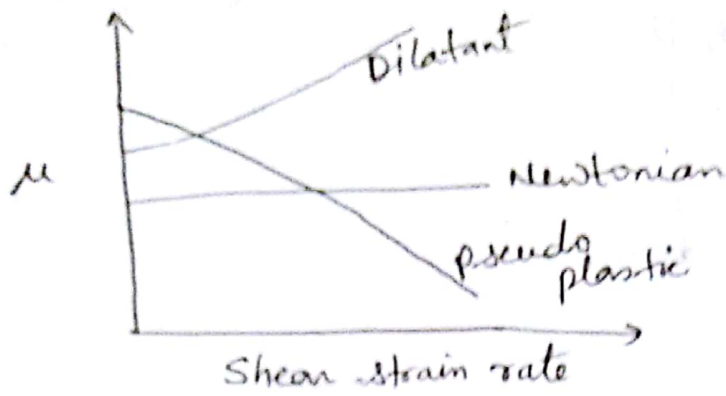 Dilatant
μ
Newtonian
pseudo
plastic
Shear strain rate